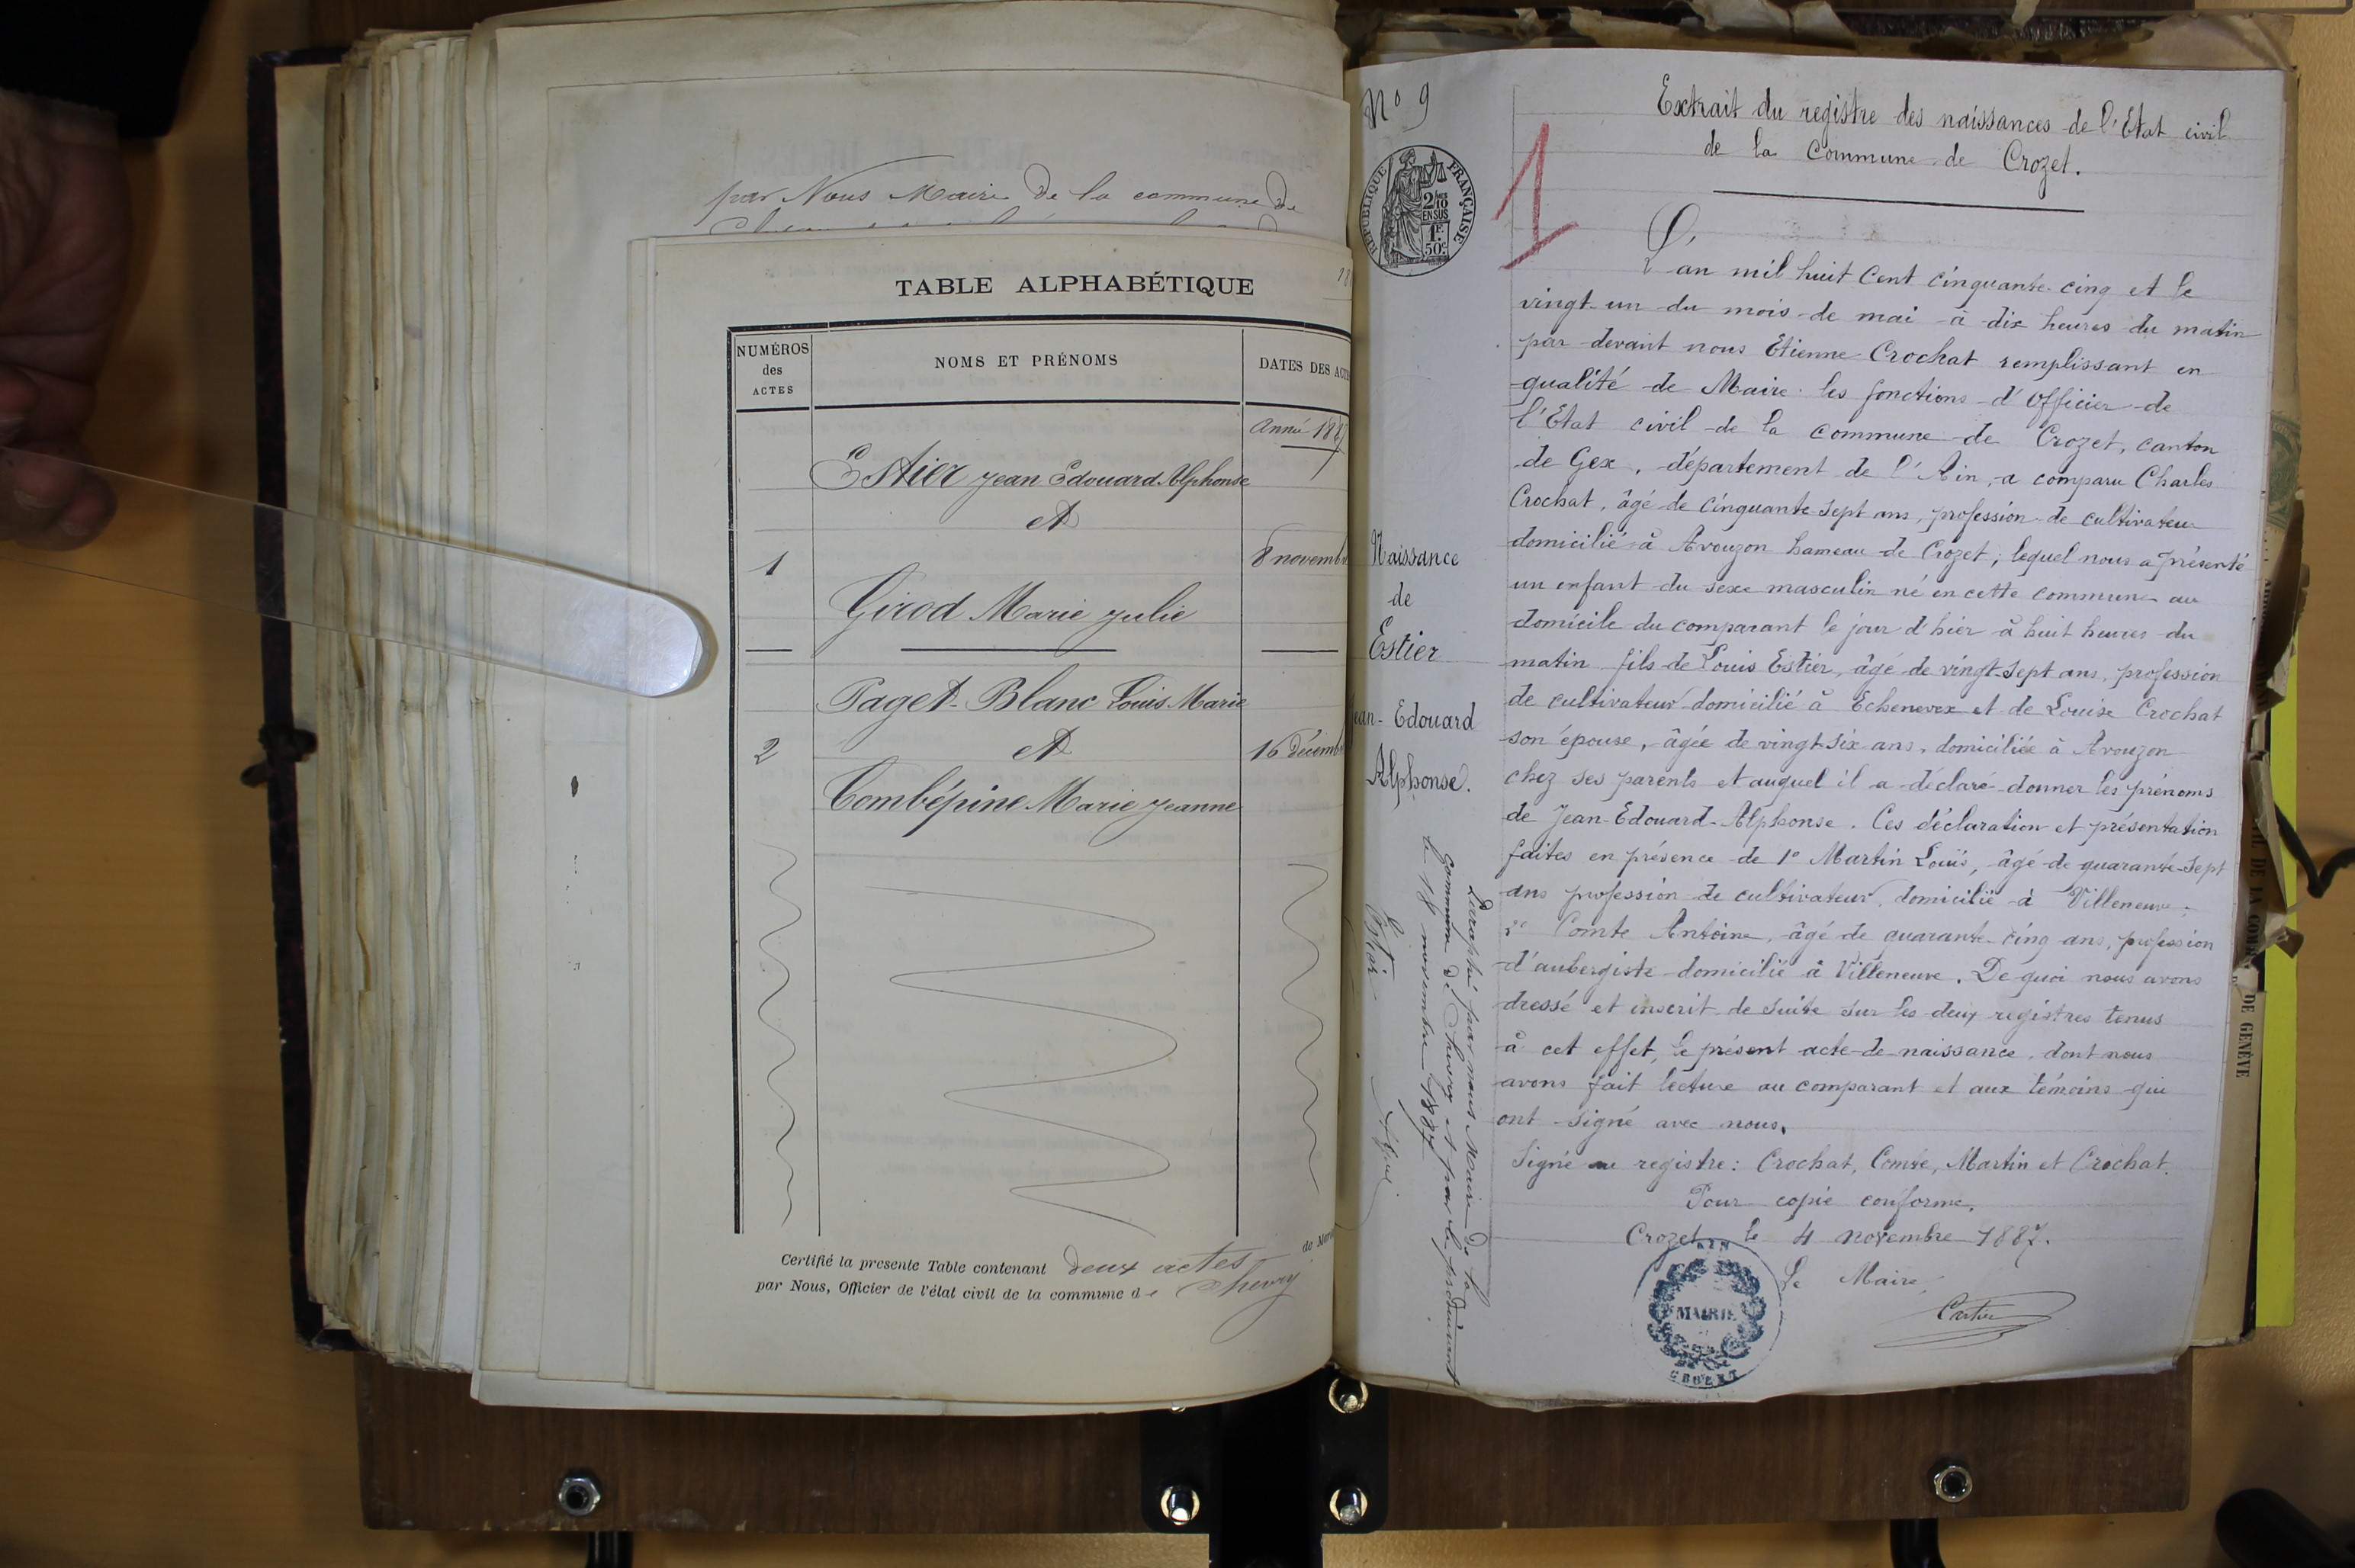 par Nous Maire de la commune de
TABLE ALPHABÉTIQUE
NUMÉROS
des
ACTES
NOMS ET PRÉNOMS
DATES DES ACTE
Année 1887
Estier Jean Edouard Alphonse
et
1
8 novembre
Girod Marie Julie
Paget-Blanc Louis Marie
2
et
16 décemb
Combépine Marie Jeanne
Certifié la presente Table contenant deux actes de Mari
par Nous, Officier de l'état civil de la commune de Chevry
No 9
1
RÉPUBLIQUE FRANÇAISE
2/10
EN SUS
1F.
50c.
Extrait du registre des naissances de l'Etat civil
de la commune de Crozet.
L'an mil huit cent cinquante-cinq et le
vingt-un du mois de mai à dix heures du matin
par devant nous Etienne Crochat remplissant en
qualité de Maire les fonctions d'Officier de
l'Etat civil de la commune de Crozet, canton
de Gex, département de l'Ain, a comparu Charles
Crochat, âgé de cinquante-sept ans, profession de cultivateur
domicilié à Avouzon hameau de Crozet, lequel nous a présenté
un enfant du sexe masculin né en cette commune au
domicile du comparant le jour d'hier à huit heures du
matin fils de Louis Estier, âgé de vingt-sept ans, profession
de cultivateur domicilié à Echenevex et de Louise Crochat
son épouse, âgée de vingt-six ans, domiciliée à Avouzon
chez ses parents et auquel il a déclaré donner les prénoms
de Jean-Edouard-Alphonse. Ces déclaration et présentation
faites en présence de 1° Martin Louis, âgé de quarante-sept
ans profession de cultivateur, domicilié à Villeneuve;
2° Comte Antoine, âgé de quarante-cinq ans, profession
d'aubergiste domicilié à Villeneuve. De quoi nous avons
dressé et inscrit de suite sur les deux registres tenus
à cet effet, le présent acte de naissance, dont nous
avons fait lecture au comparant et aux témoins qui
ont signé avec nous.
Signé au registre: Crochat, Comte, Martin et Crochat.
Pour copie conforme,
Crozet le 4 novembre 1887.
Le Maire,
AIN
MAIRIE
CROZET
Naissance
de
Estier
ean-Edouard
Alphonse.
par nous Maire de la
Commune de Chevry et par le
le 18 novembre 1887
Estier
DE GENÈVE